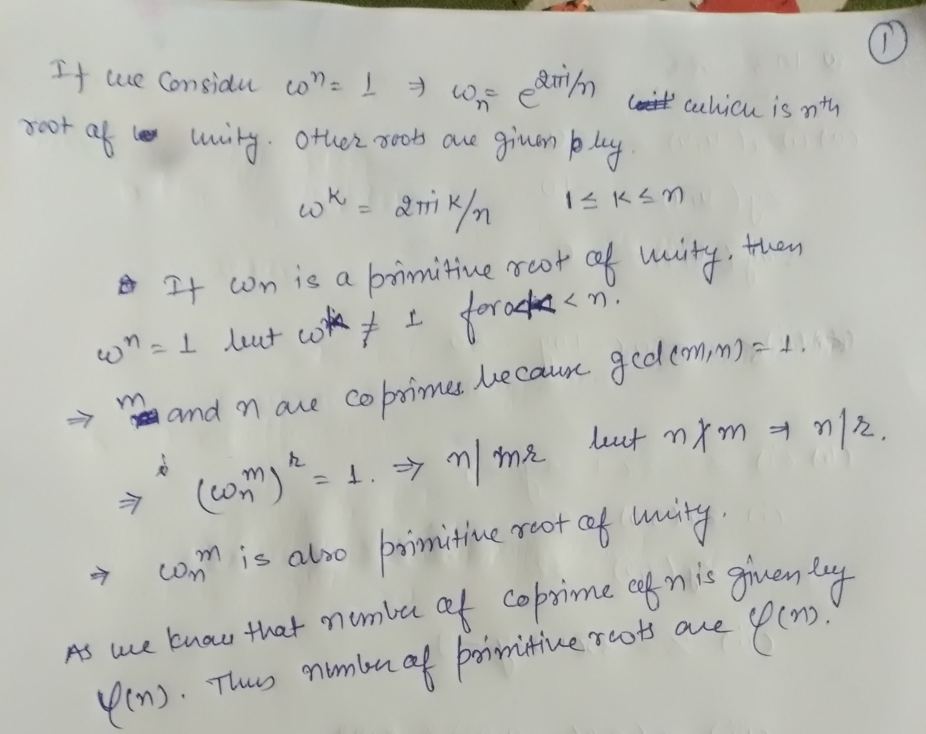 ①
If we Consider ωⁿ = 1 ⇒ ωₙ = e^{2πi/n} which is nth
root of unity. Other roots are given by.
ω^k = 2πi k/n 1 ≤ k ≤ n
If ωn is a primitive root of unity. then
ωⁿ = 1 but ω ≠ 1 for < n.
⇒ m and n are coprimes because gcd(m,n) = 1.
⇒ (ωₙ^m)^r = 1. ⇒ n | mr but n ∤ m ⇒ n | r.
⇒ ωₙ^m is also primitive root of unity.
As we know that number of coprime of n is given by
φ(n). Thus number of primitive roots are φ(n).